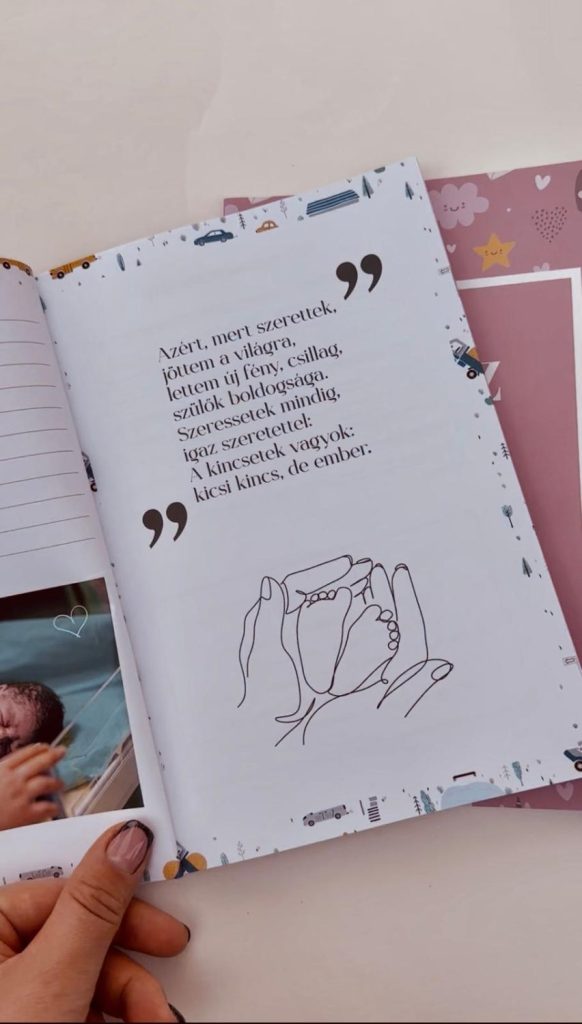 Azért, mert szerettek,
jöttem a világra,
lettem új fény, csillag,
szülők boldogsága.
Szeressetek mindig,
igaz szeretettel:
A kincsetek vagyok:
kicsi kincs, de ember.